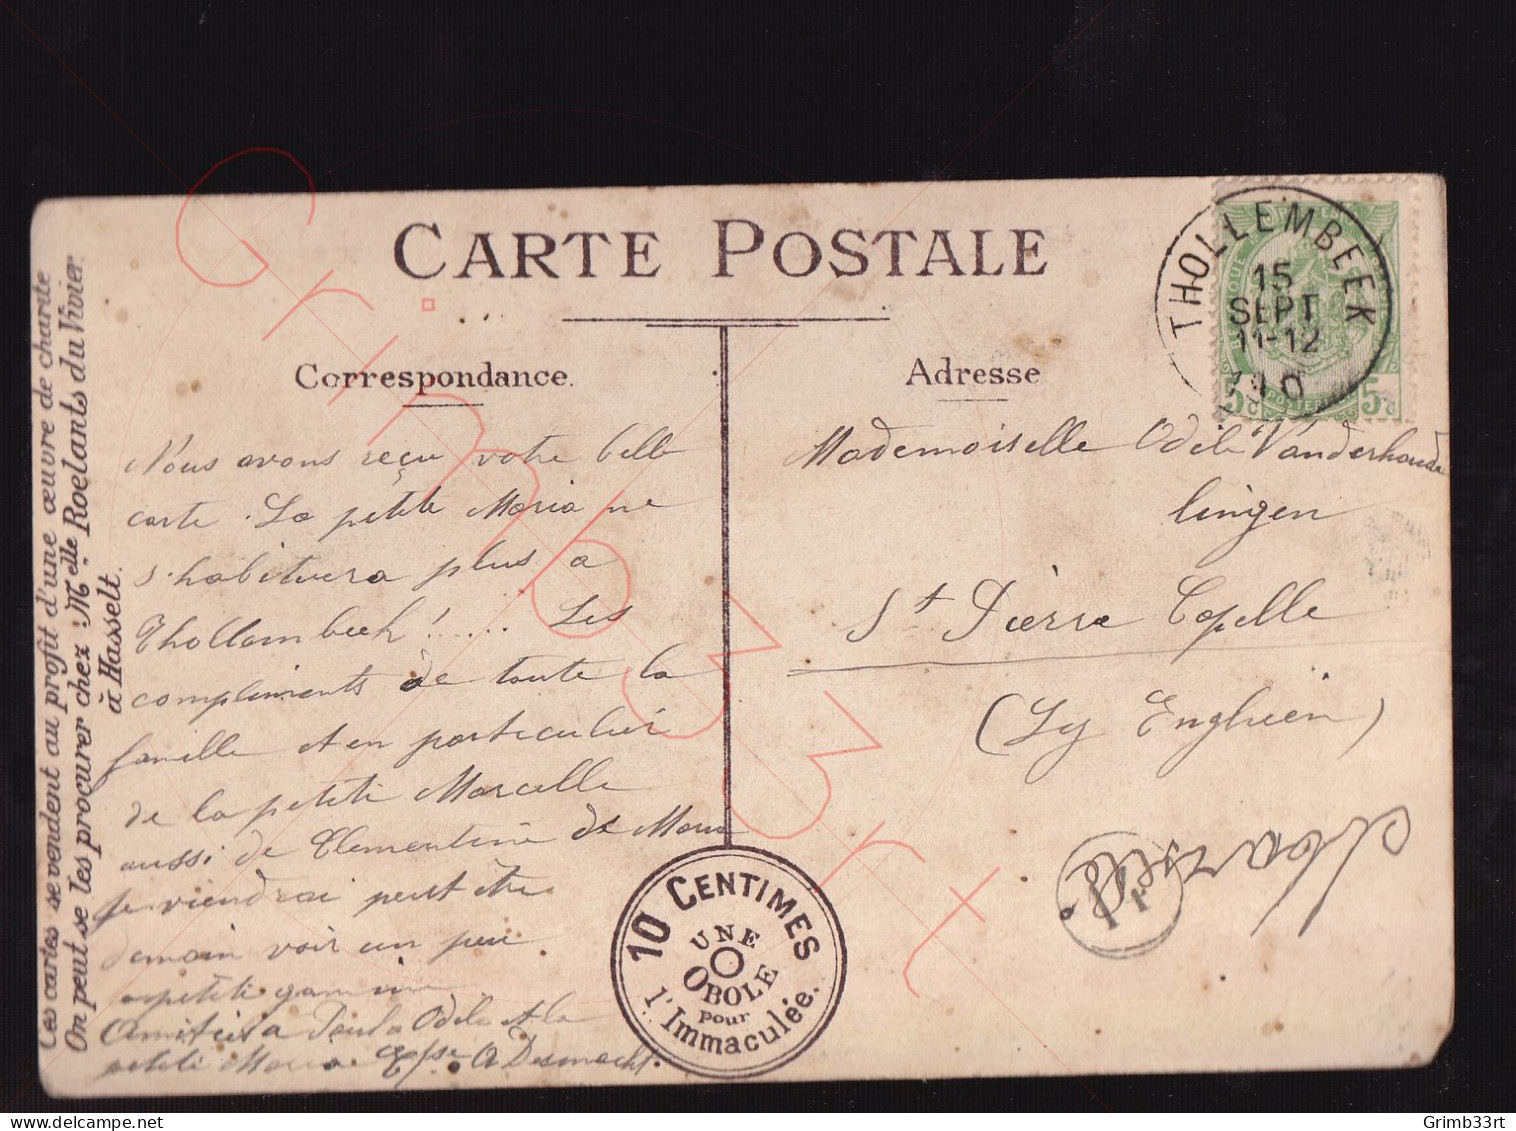 CARTE POSTALE
Correspondance.
Adresse
Ces cartes se vendent au profit d'une œuvre de charité
On peut se les procurer chez : Melle Roelants du Vivier
à Hasselt.
Nous avons reçu votre belle
carte. La petite Maria ne
s'habituera plus a
Thollembeek! ..... Les
compliments de toute la
famille et en particulier
de la petite Marcelle
aussi de Clementine de
je viendrai peut être
demain voir un peu
petite gamine
Amitiés a Paula Odile et la
petite Maria
THOLLEMBEEK
15
SEPT
11-12
5c 5c
Mademoiselle Odile Vanderhoude
lingen
St Pierre Capelle
(Ly Enghien)
14
10 CENTIMES
UNE
OBOLE
pour
l'Immaculée.
Grimb33rt
Grimb33rt - Delcampe.net